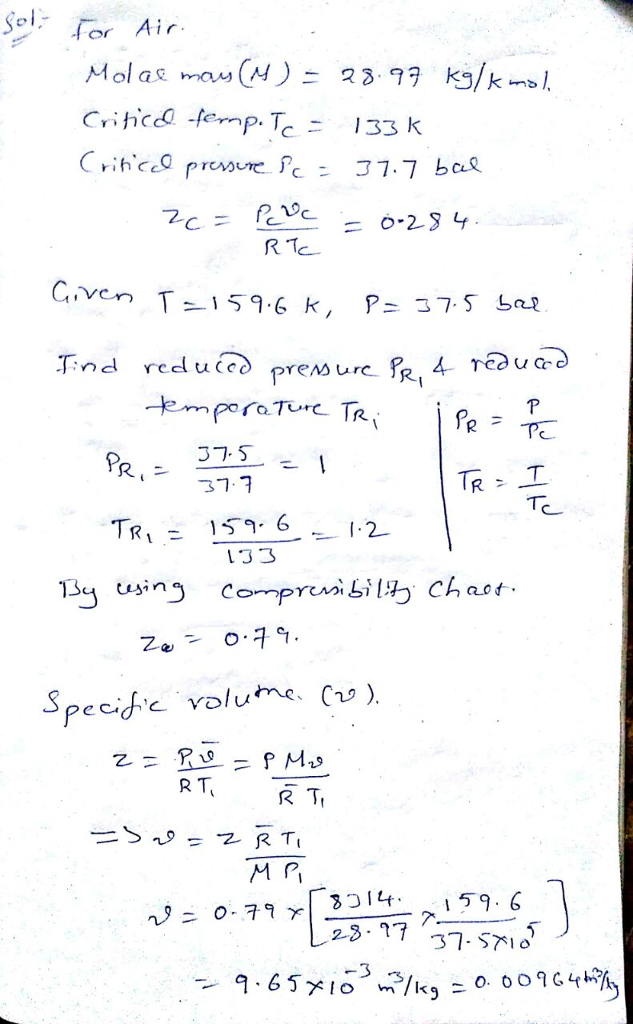 Sol:- For Air.
Molar mass (M) = 28.97 kg/kmol.
Critical temp. Tc = 133 K
Critical pressure Pc = 37.7 bar
Zc = Pcvc / RTc = 0.284.
Given T = 159.6 K, P = 37.5 bar.
Find reduced pressure PR, & reduced
temperature TR;
PR = P / Pc
PR1 = 37.5 / 37.7 = 1
TR = T / Tc
TR1 = 159.6 / 133 = 1.2
By using compressibility chart.
Z = 0.79.
Specific volume. (v).
Z = Pv̅ / RT1 = PMv / R̅T1
=> v = Z R̅T1 / MP1
v = 0.79 × [8314. / 28.97 × 159.6 / 37.5×10⁵]
= 9.65×10⁻³ m³/kg = 0.00964 m³/kg